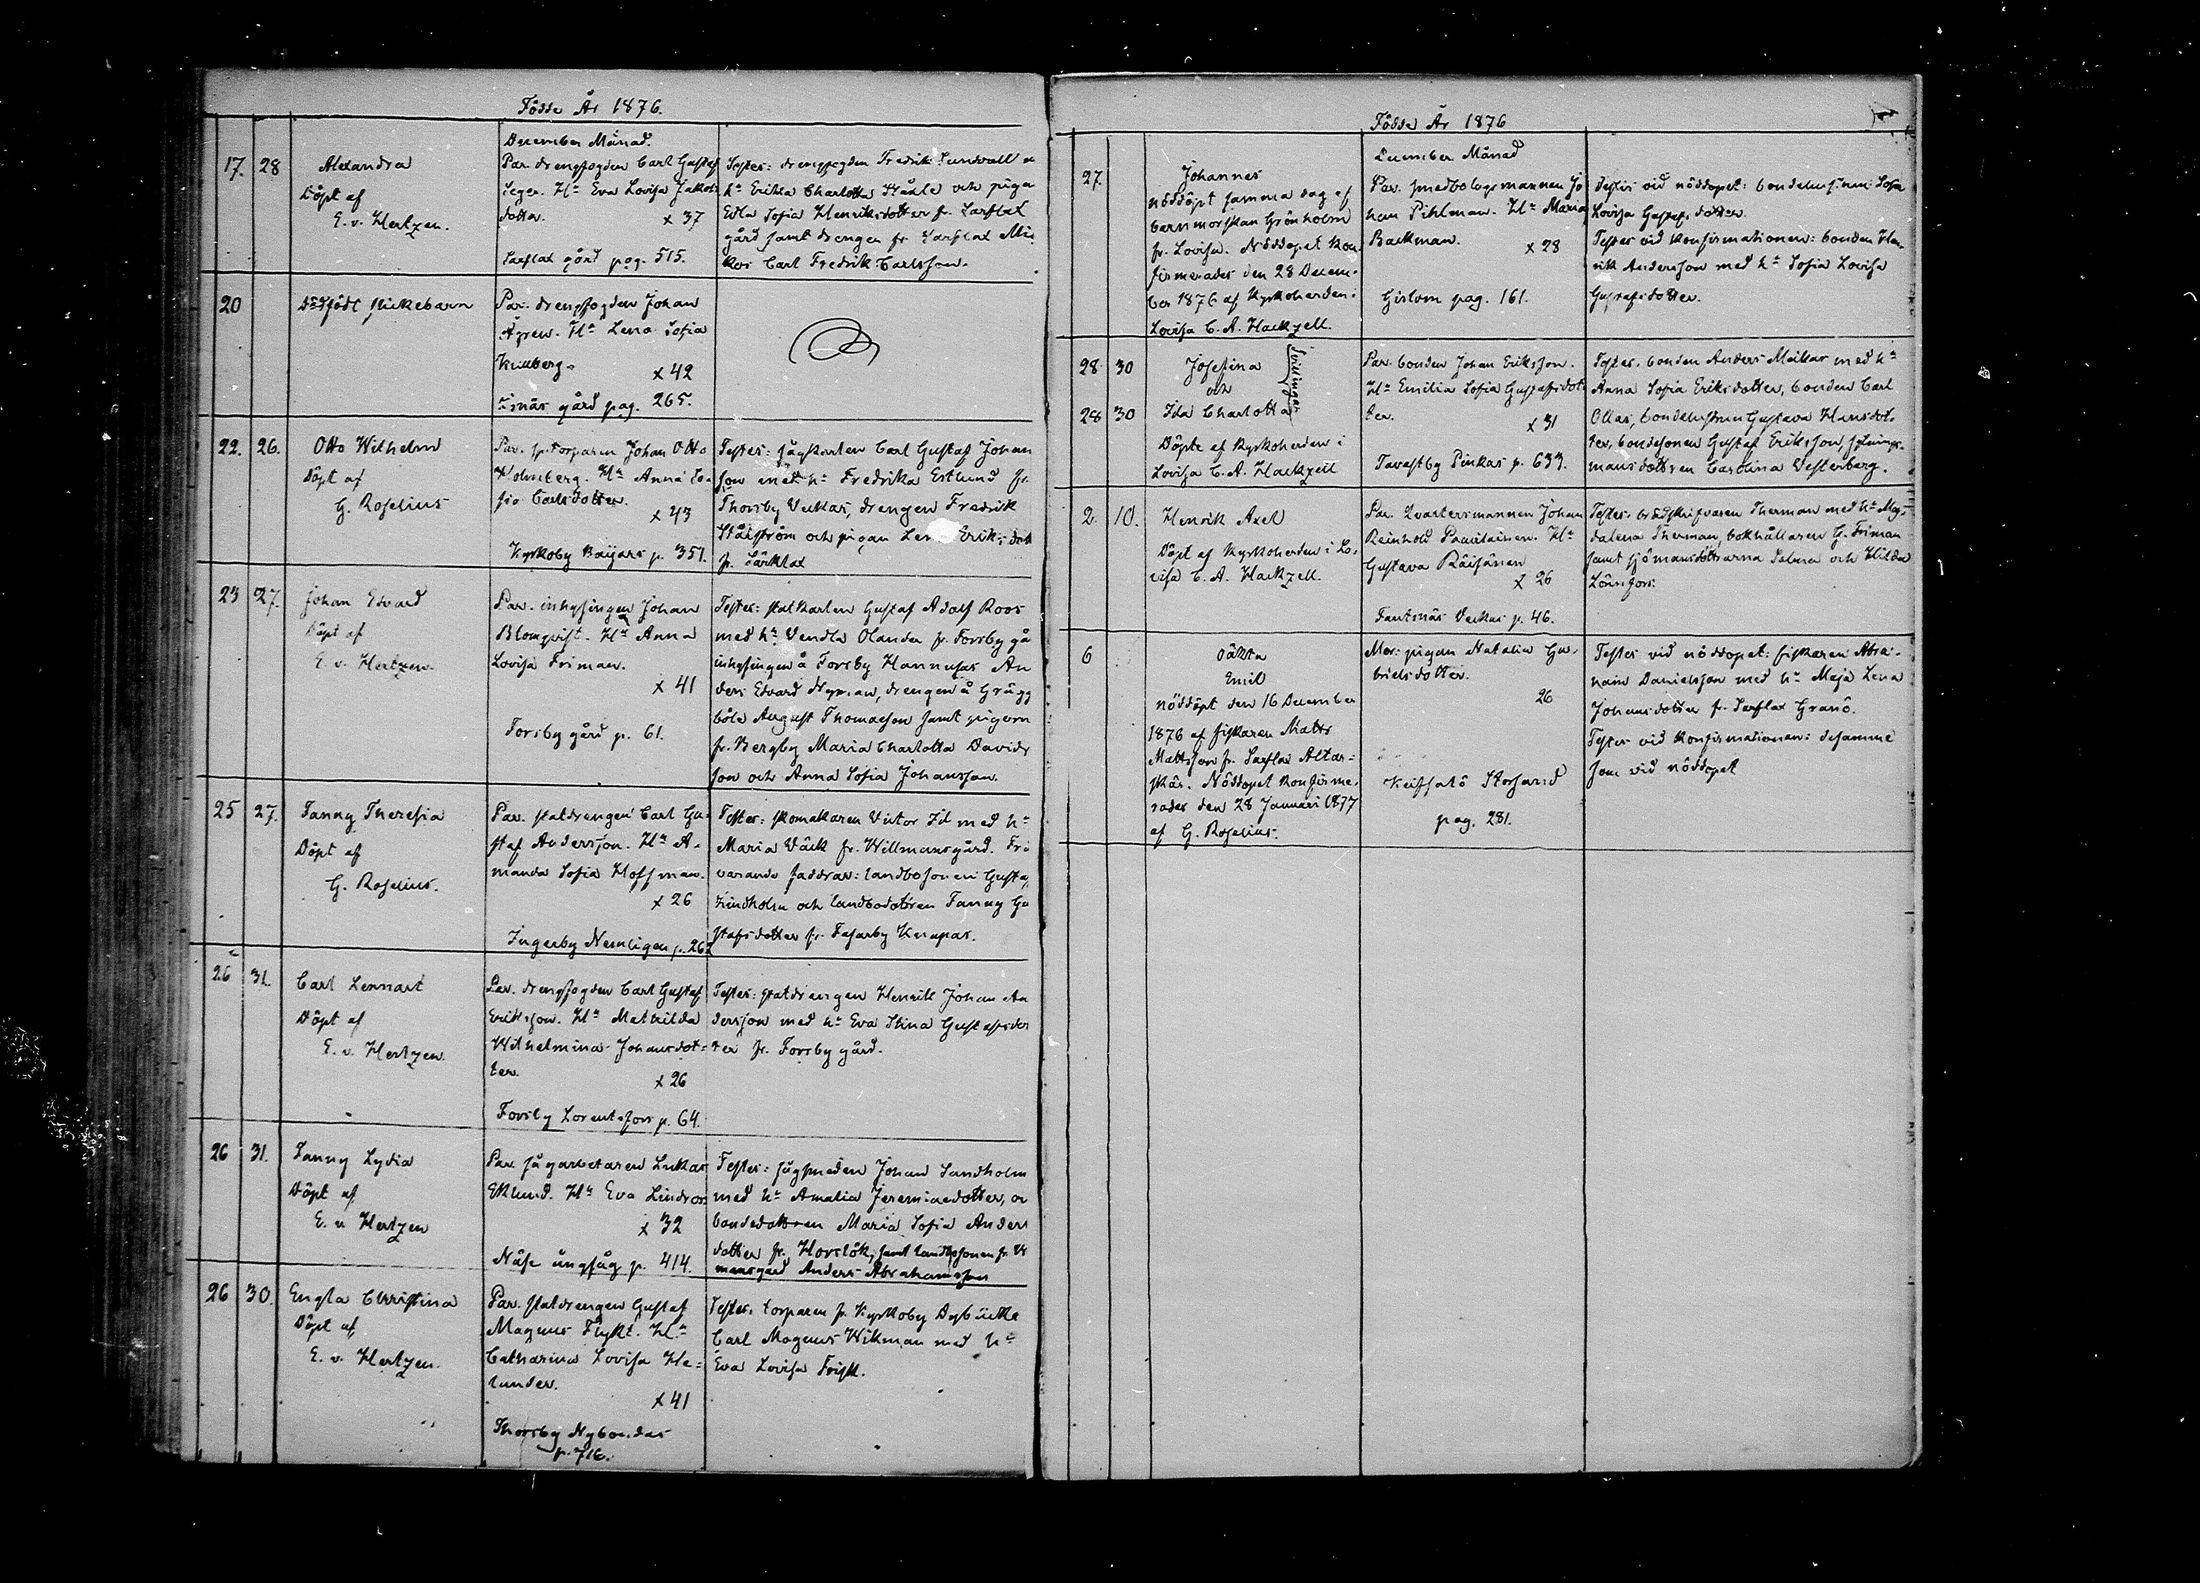 Födde År 1876.
December Månad.
17. 28 Alexandra
Döpt af
E. v. Hertzen.
Par. drengfogden Carl Gustaf
Seger. H:n Eva Lovisa Jakobs
dotter. x 37
Sarflax gård pag. 515.
Testes: drengfogden Fredrik Sundvall
h:n Erika Charlotta Ståhle och piga
Edla Sofia Henriksdotter fr. Sarflax
gård samt drengen fr. Sarflax Mic
kos Carl Fredrik Carlsson.
20 Dödfödt flickebarn
Par. drengfogden Johan
Ågren. H:n Lena Sofia
x 42
gård pag. 265.
22. 26. Otto Wilhelm
Döpt af
G. Roselius
Par. torparen Johan Otto
Holmberg. H:n Anna So-
fia Carlsdotter.
x 43
Kyrkoby p. 351.
Testes: sågkarlen Carl Gustaf Johan
son med h:n Fredrika Estlund fr.
Thorsby Veckas, drengen Fredrik
Stålström och pigan Eriksdott
fr. Särklax
23 27. Johan Edvard
Döpt af
E. v. Hertzen.
Par. inhysingen Johan
Blomqvist. H:n Anna
Lovisa Friman.
x 41
Forsby gård p. 61.
Testes: statkarlen Gustaf Adolf Roos
med h:n Vendla Olander fr. Forsby gå
inhysingen å Forsby Hannusas An
ders Edvard Nyman, drengen å Grägg
böle August Thomasson samt pigorn
fr. Bergby Maria Charlotta Davids
son och Anna Sofia Johansson.
25 27. Fanny Theresia
Döpt af
G. Roselius.
Par. statdrengen Carl Gu-
staf Andersson. H:n A-
manda Sofia Hoffman.
x 26
Ingerby Nemligen p. 262
Testes: skomakaren Victor Id med h:n
Maria Väck fr. Willmansgård. Frå
varande faddrar: landbosonen Gustaf
Lindholm och landbodottren Fanny Gu
stafsdotter fr. Fasarby Knapas.
26 31. Carl Lennart
Döpt af
E. v. Hertzen
Par. drengfogden Carl Gustaf
Eriksson. H:n Mathilda
Wilhelmina Johansdot-
ter.
x 26
Forsby Lorentsfors p. 64.
Testes: statdrengen Henrik Johan An
dersson med h:n Eva Stina Gustafsdot
ter fr. Forsby gård.
26 31. Fanny Lydia
Döpt af
E. v. Hertzen
Par. sågarbetaren Lukas
Eklund. H:n Eva Lindros
x 32
Näse ångsåg p. 414.
Testes: sågsmeden Johan Sandholm
med h:n Amalia Jeremiaedotter, oc
bondedottren Maria Sofia Anders
dotter fr. Horslök, samt landbosonen fr. W
mansgård Anders Abrahamsson
26 30. Engla Christina
Döpt af
E. v. Hertzen.
Par. statdrengen Gustaf
Magnus Flykt. H:n
Catharina Lovisa He-
lander.
x 41
Thorsby Nybondas
p. 716.
Testes: torparen fr. Kyrkoby Dybäcka
Carl Magnus Wikman med h:n
Eva Lovisa Frisk.
Födde År 1876
December Månad
27. Johannes
nöddöpt samma dag af
barnmorskan Grönholm
fr. Lovisa. Nöddopet kon
firmerades den 28 Decem-
ber 1876 af Kyrkoherden i
Lovisa C. A. Hackzell.
Par. smedbolagsmannen Jo
han Pihlman. H:n Maria
Backman. x 28
Gislom pag. 161.
Testes vid nöddopet: bondehustrun Sofia
Lovisa Gustafsdotter.
Testes vid konfirmationen: bonden Hen-
rik Andersson med h:n Sofia Lovisa
Gustafsdotter.
28 30 Josefina
och
28 30 Ida Charlotta
tvillingar
Döpte af Kyrkoherden i
Lovisa C. A. Hackzell
Par. bonden Johan Eriksson.
H:n Emilia Sofia Gustafsdot
ter. x 31
Tavastby Pinkas p. 633.
Testes: bonden Anders Mickos med h:n
Anna Sofia Eriksdotter, bonden Carl
Ollas, bondehustrun Gustava Hansdot-
ter, bondesonen Gustaf Eriksson,
mansdottren Carolina Westerberg.
2 10. Henrik Axel
Döpt af Kyrkoherden i Lo-
visa C. A. Hackzell.
Par. Qvartersmannen Johan
Reinhold Pavilainen. H:n
Gustava Räisänen
x 26
Fantsnäs Veckas p. 46.
Testes: brädskrifvaren Therman med h:n Mag-
dalena Therman, bokhållaren G. Friman
samt sjömansdöttrarna Selma och Hilda
Lönnfors.
6 oäkta
Emil
nöddöpt den 16 December
1876 af fiskaren Matts
Mattsson fr. Sarflax Altar-
skär. Nöddopet konfirme-
rades den 28 Januari 1877
af G. Roselius.
Mor: pigan Natalia Ga-
brielsdotter.
26
Keipsalö Storgård
pag. 281.
Testes vid nöddopet: fiskaren Abra-
ham Danielsson med h:n Maja Lena
Johansdotter fr. Sarflax Granö.
Testes vid konfirmationen: desamme
som vid nöddopet